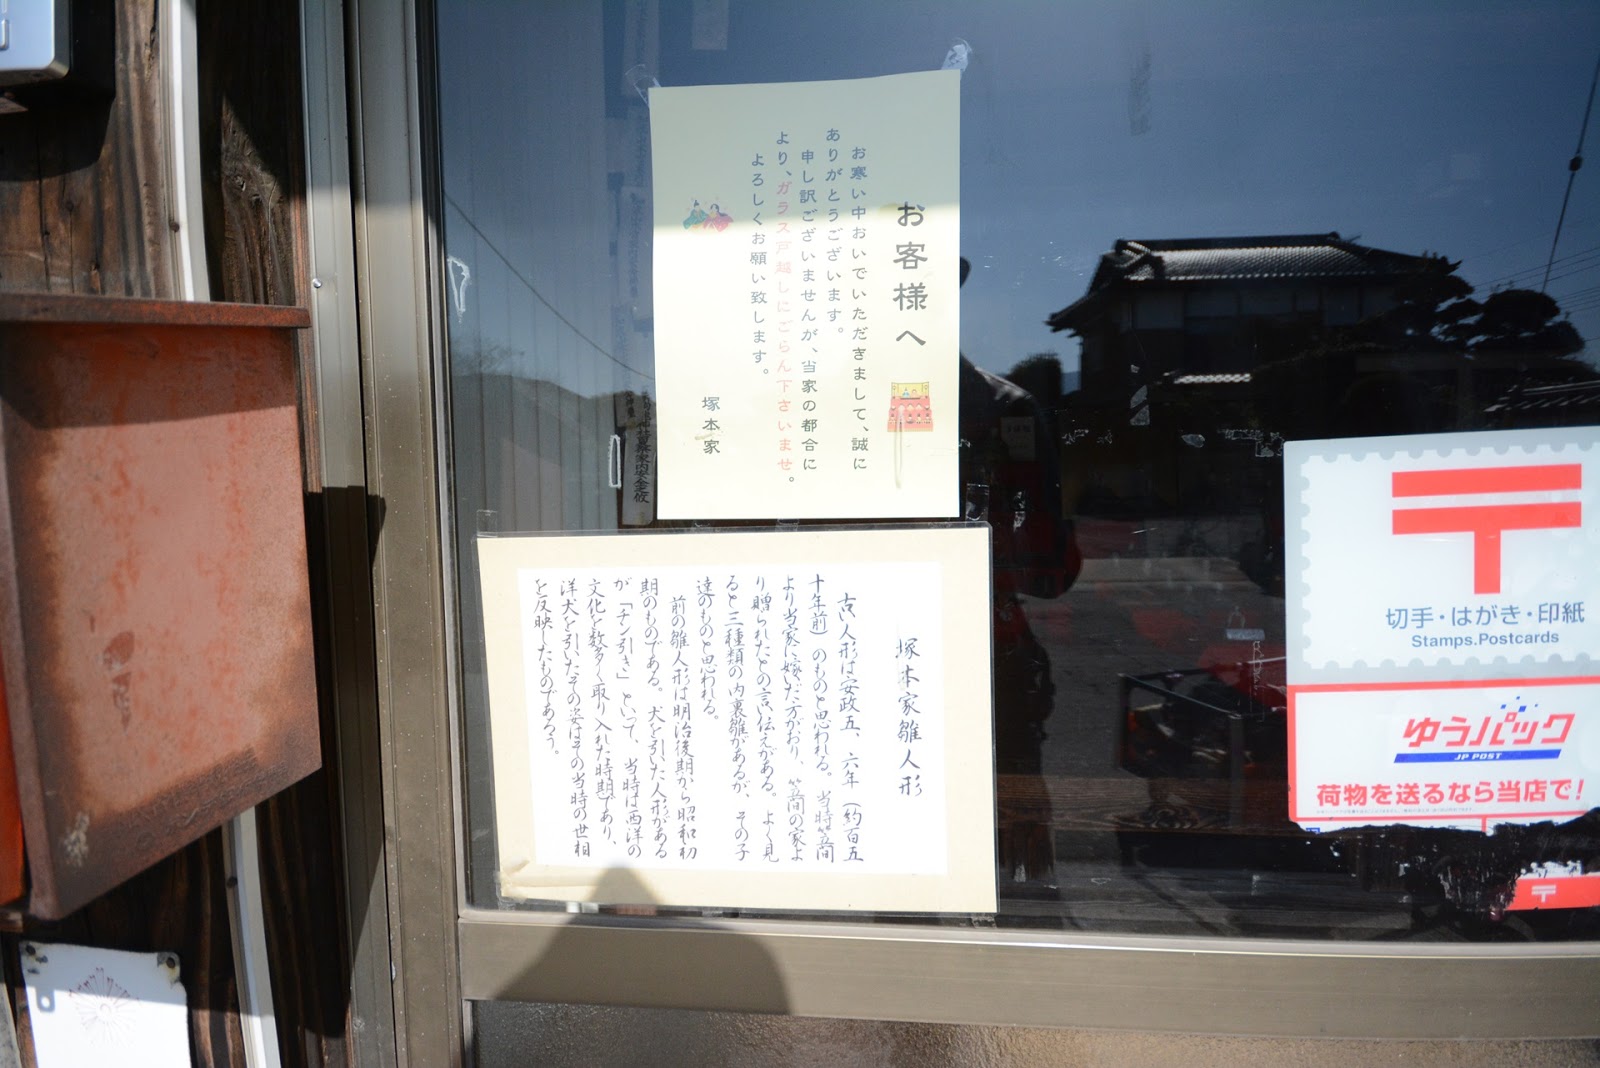 お客様へ
お寒い中おいでいただきまして、誠に
ありがとうございます。
申し訳ございませんが、当家の都合に
より、ガラス戸越しにごらん下さいませ。
よろしくお願い致します。
塚本家
塚本家雛人形
古い人形は安政五、六年（約百五
十年前）のものと思われる。当時笠間
より当家に嫁いだ方がおり、笠間の家よ
り贈られたとの言い伝えがある。よく見
ると三種類の内裏雛があるが、その子
達のものと思われる。
前の雛人形は明治後期から昭和初
期のものである。犬を引いた人形がある
が「チン引き」といって、当時は西洋の
文化を数多く取り入れた時期であり、
洋犬を引いたその姿はその当時の世相
を反映したものであろう。
切手・はがき・印紙
Stamps.Postcards
ゆうパック
JP POST
荷物を送るなら当店で!